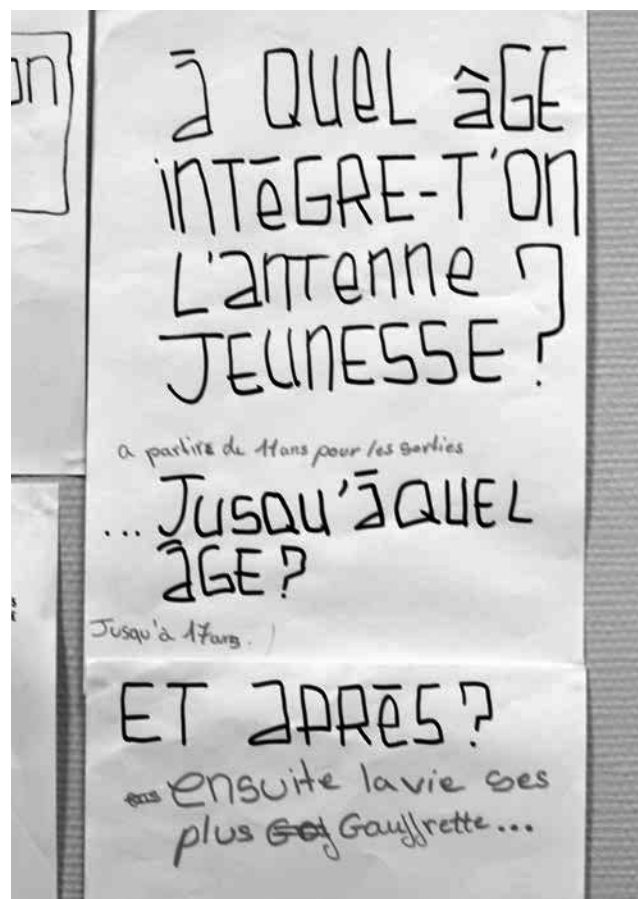 on
à QUEL âGE
INTéGRE-T'ON
L'ANTENNE
JEUNESSE ?
a partire de 11ans pour les sorties
...JUSQU'à QUEL
âGE ?
Jusqu'à 17ans.
ET APRèS ?
ensuite la vie ses
plus Gauffrette...